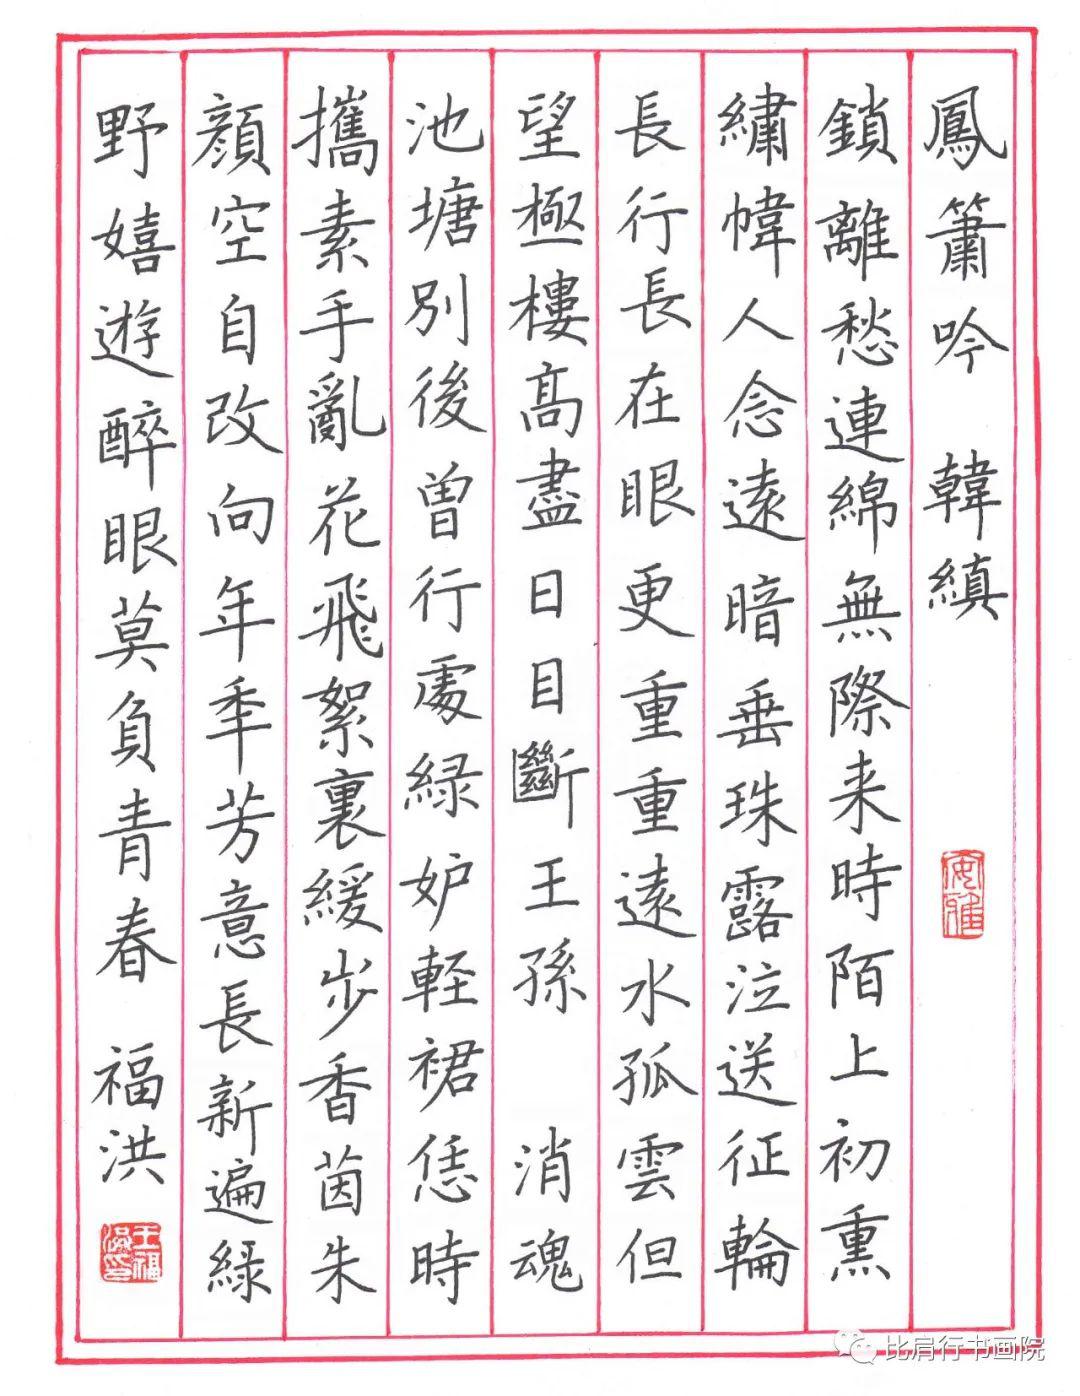 鳳簫吟 韓縝
鎖離愁連綿無際来時陌上初熏
繡幃人念遠暗垂珠露泣送征輪
長行長在眼更重重遠水孤雲但
望極樓高盡日目斷王孫 消魂
池塘別後曽行處綠妒輕裙恁時
攜素手亂花飛絮裏緩步香茵朱
顏空自改向年年芳意長新遍綠
野嬉遊醉眼莫負青春 福洪
王福洪印
比肩行书画院